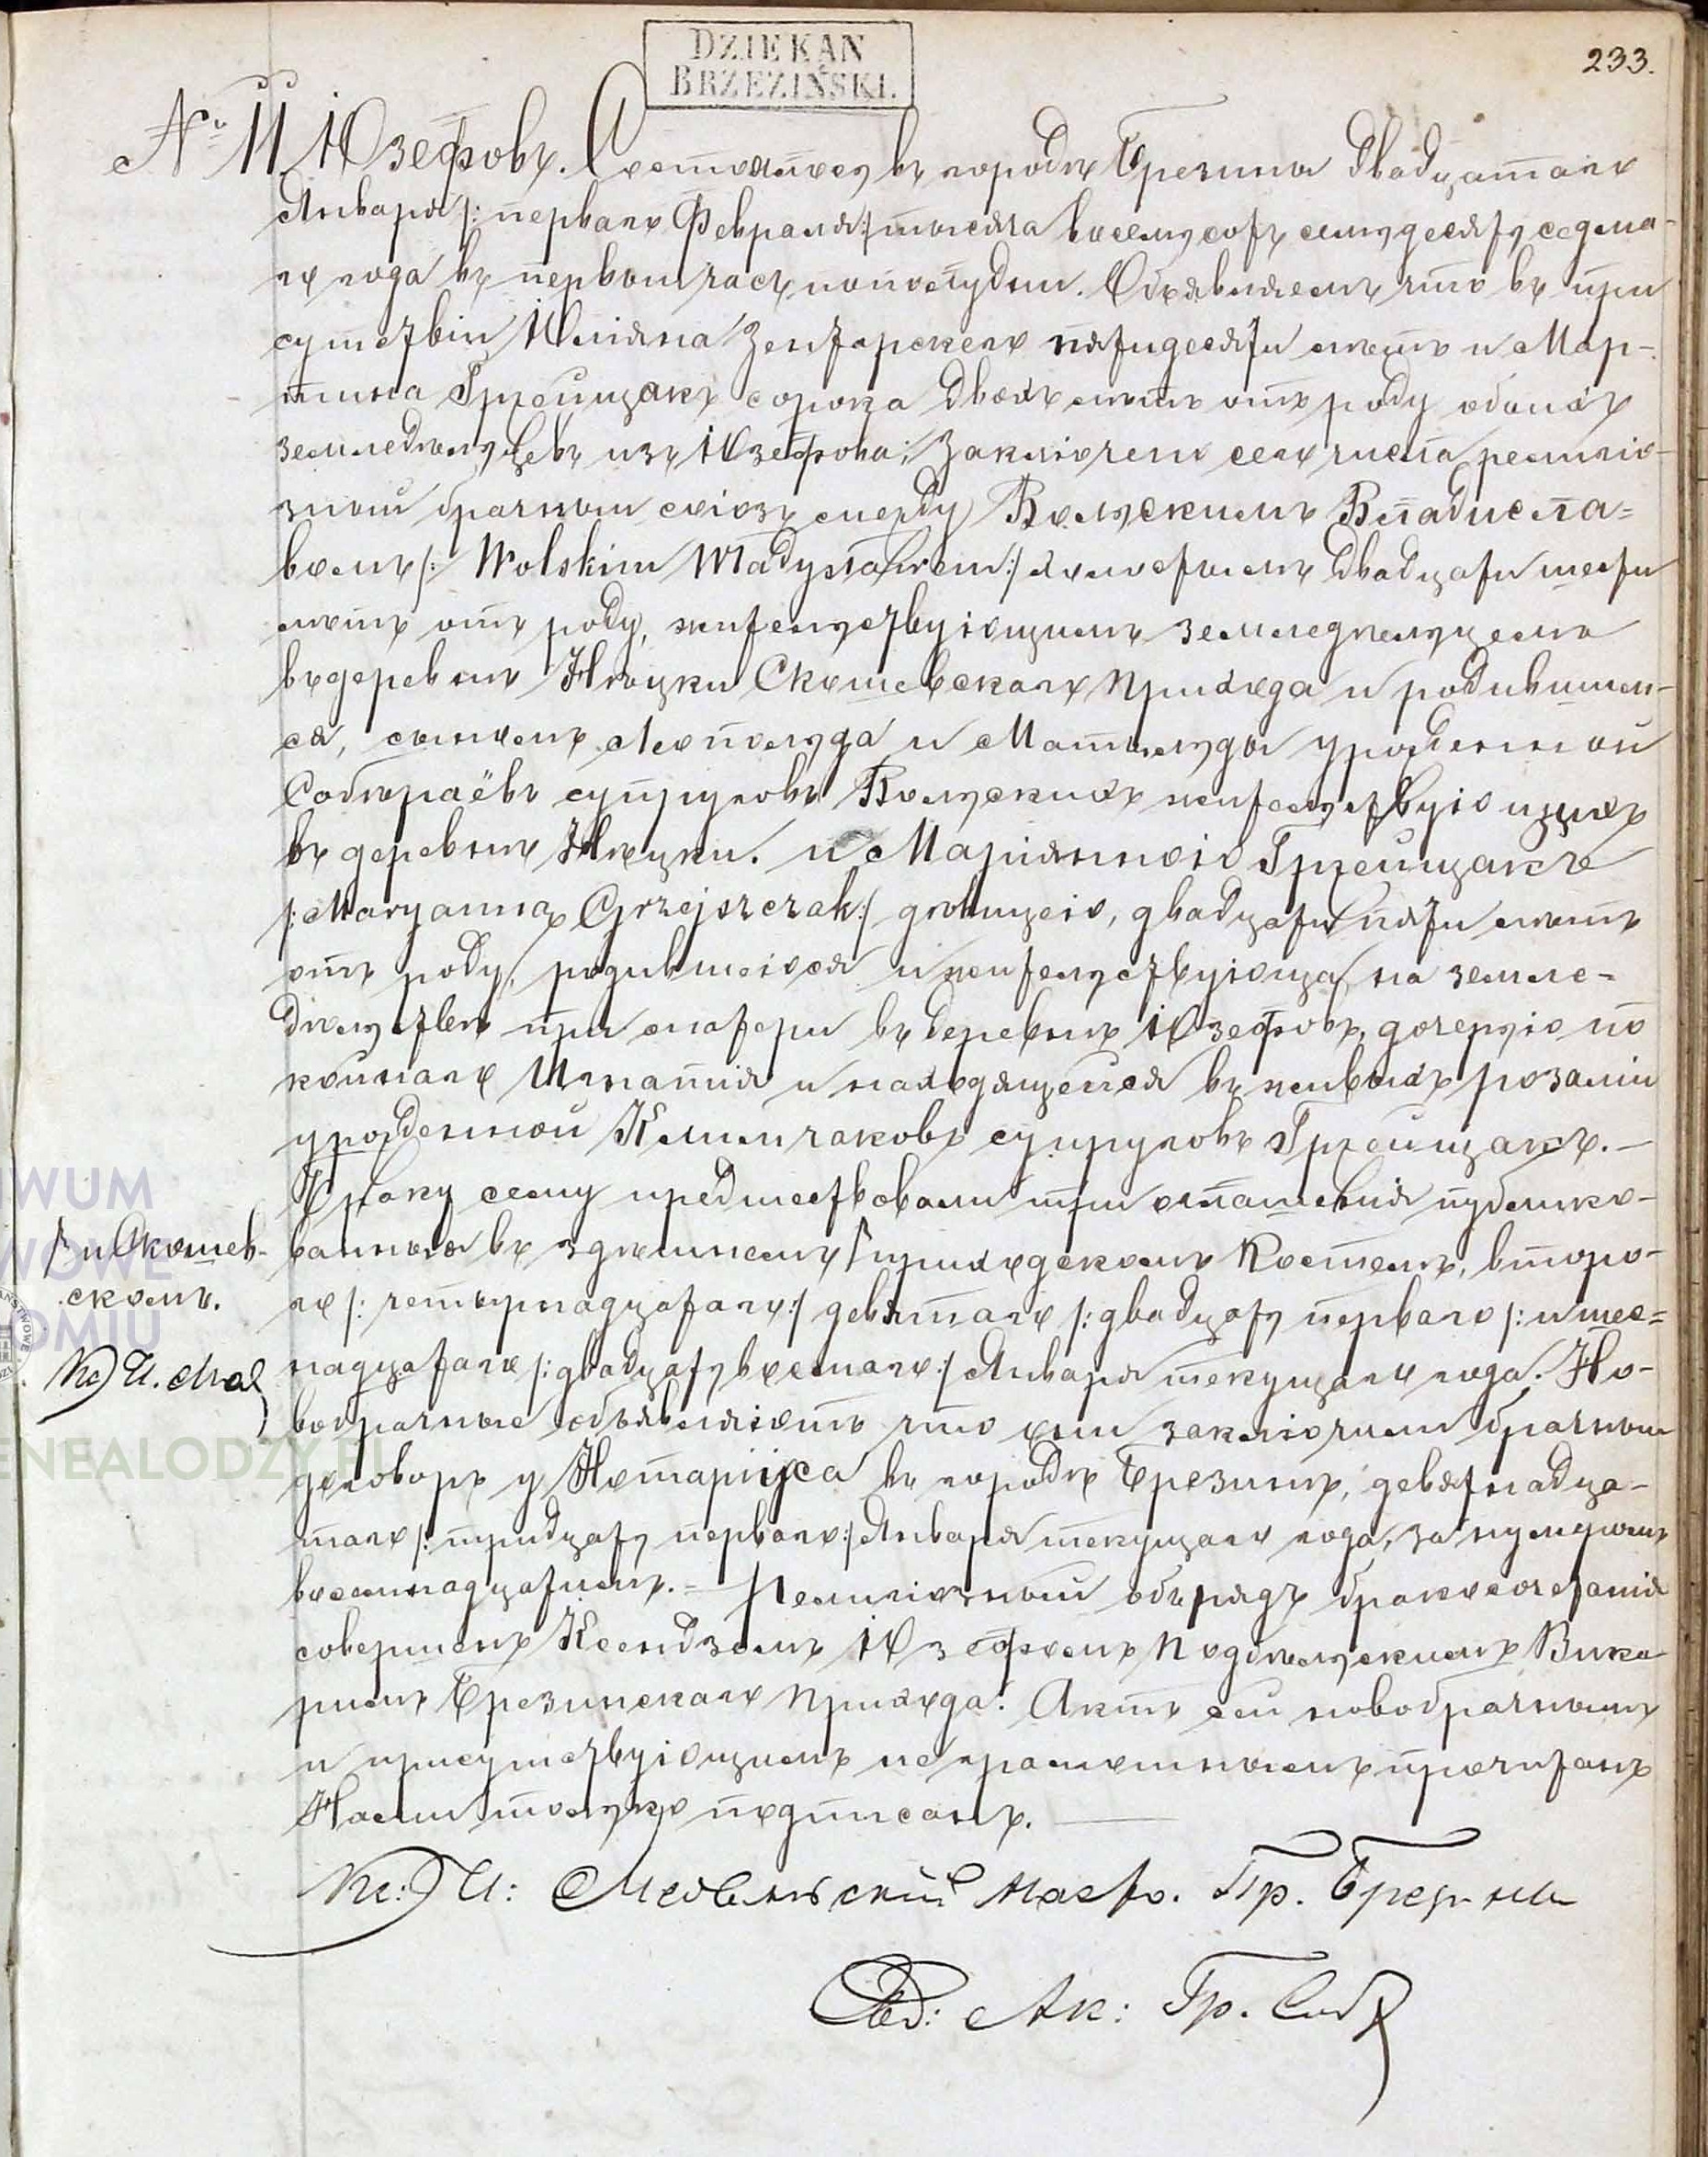 DZIEKAN
BRZEZIŃSKI.
233.
№ 11 Юзефовъ. Состоялось въ городѣ Брезины двадцатаго
Января /: перваго Февраля :/ тысяча восемьсотъ семьдесятъ седма-
го года въ первомъ часъ пополудни. Объявляемъ что въ при
сутствіи Юліана Зентарскаго пятидесяти лѣтъ и Мар-
тина Гржейщакъ сорока двохъ лѣтъ отъ роду обоихъ
земледѣльцевъ изъ Юзефова; Заключено сего числа религіо-
зный брачный союзъ между Вольскимъ Владисла=
вомъ /: Wolskim Władysławem :/ холостымъ двадцати шести
лѣтъ отъ роду, жительствующимъ земледѣльцемъ
въ деревнѣ Нѣцки Скошевскаго прихода и родившем-
ся, сыномъ Леопольда и Матильды урожденной
Собѣраёвъ супруговъ Вольскихъ жительствующихъ
въ деревнѣ Нѣцки. и Маріянною Гржейщакъ
/: Maryanną Grzejszczak :/ дѣвицею, двадцати пяти лѣтъ
отъ роду, родившеюся и жительствующа на земле=
дѣльствѣ при матери въ деревнѣ Юзефовъ, дочерью по
койнаго Игнатія и находящейся въ живыхъ Розаліи
урожденной Климчаковъ супруговъ Гржейщакъ. —
Браку сему предшествовали три оглашенія публико-
ванныя въ здѣшнемъ Г приходскомъ Костелѣ, второ-
Г и Скошев-
скомъ.
Кс И. Мод
го /: четырнадцатаго :/ девятаго /: двадцать перваго /: и шес=
надцатаго /: двадцать восмаго :/ Января текущаго года. Но-
вобрачные объявляютъ что они заключили брачный
договоръ у Нотаріуса въ городѣ Брезинѣ, девятнадца-
таго /: тридцать перваго :/ Января текущаго года, за нумеромъ
восемнадцатымъ. = Религіозный обърядъ бракосочетанія
совершенъ Ксендзомъ Юзефомъ Подѣльскимъ Вика
ріемъ Брезинскаго прихода. Актъ сей новобрачнымъ
и присутствующимъ неграмотнымъ прочитанъ
Нами только подписанъ. —
Кс: И: Насто. Пр. Брезины
Ак: Гр. Сост